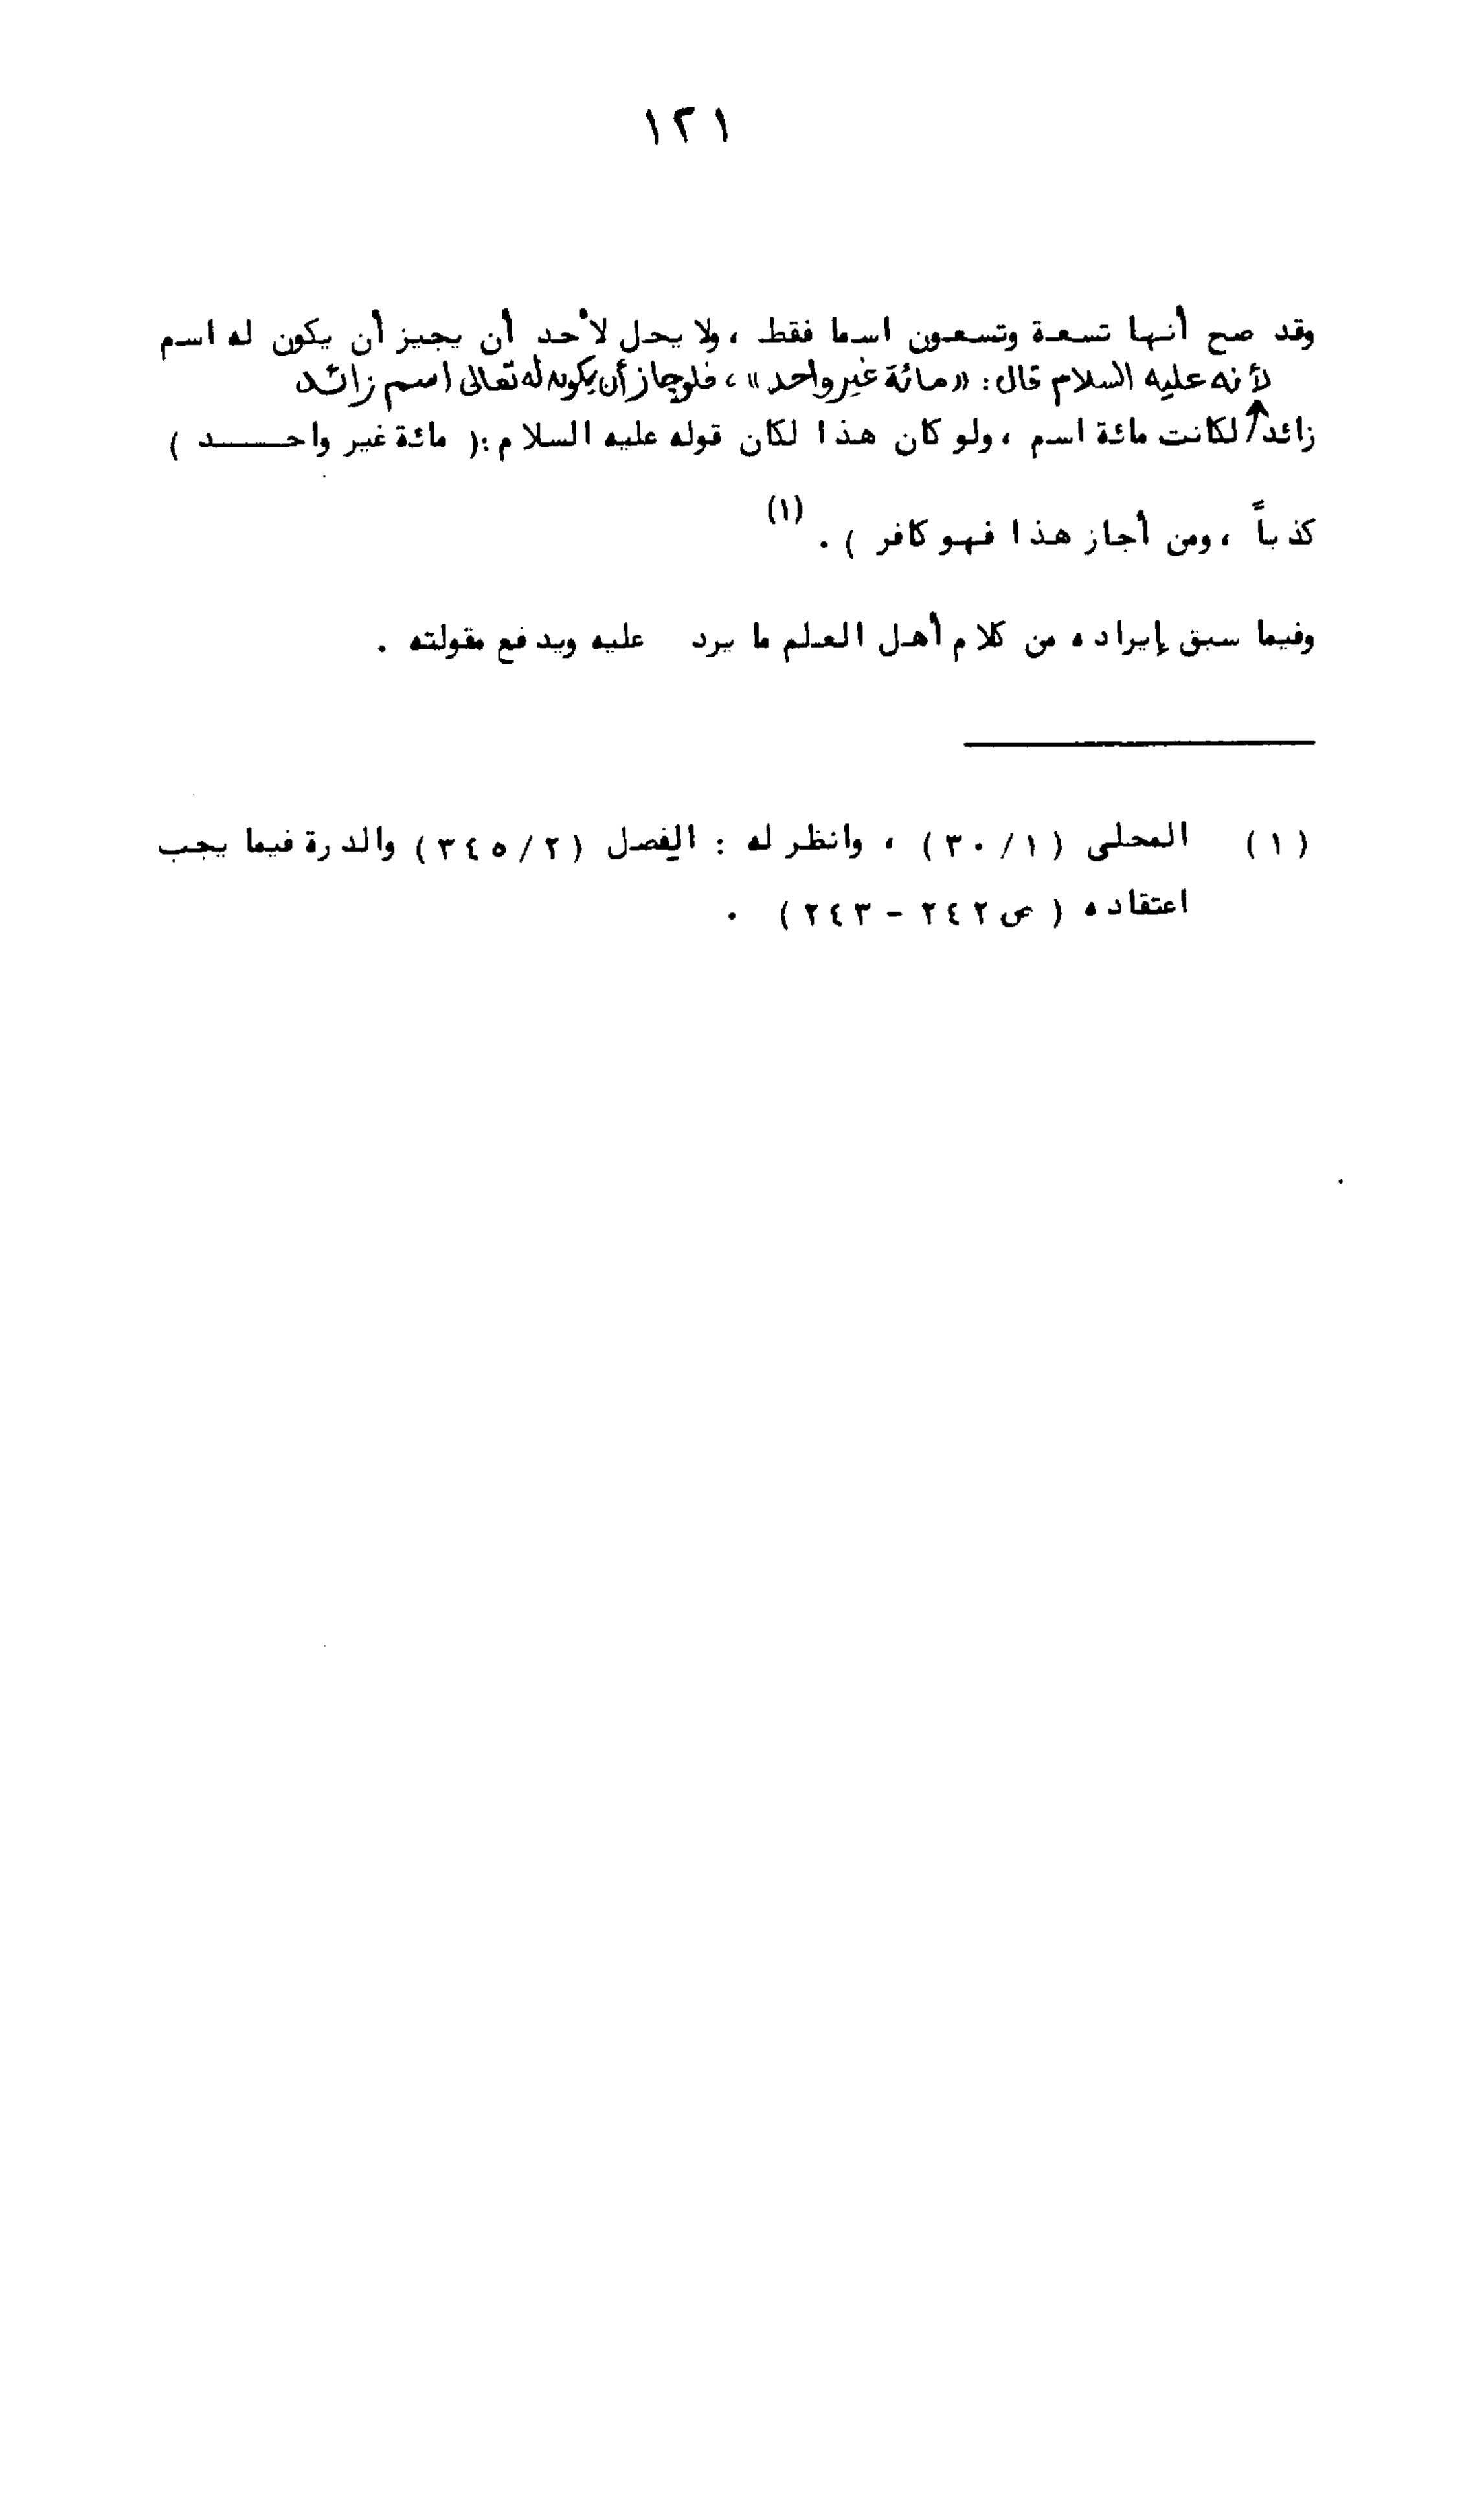 ١٢١
وقد صح أنها تسعة وتسعون اسما فقط ، ولا يحل لأحد أن يجيز أن يكون له اسم
لأنه عليه السلام قال: «مائة غير واحد» ، فلو جاز أن يكون له تعالى اسم زائد
زائد لكانت مائة اسم ، ولو كان هذا لكان قوله عليه السلام :( مائة غير واحد )
كذباً ، ومن أجاز هذا فهو كافر ) . (١)
وفيما سبق إيراده من كلام أهل العلم ما يرد عليه ويدفع مقولته .
(١) المحلى (١/ ٣٠) ، وانظر له : الفِصل (٢/ ٣٤٥) والدرة فيما يجب
اعتقاده ( ص ٢٤٢ - ٢٤٣) .